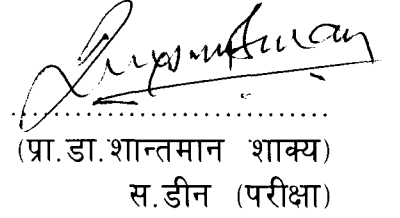 ................................
(प्रा.डा.शान्तमान शाक्य)
स.डीन (परीक्षा)